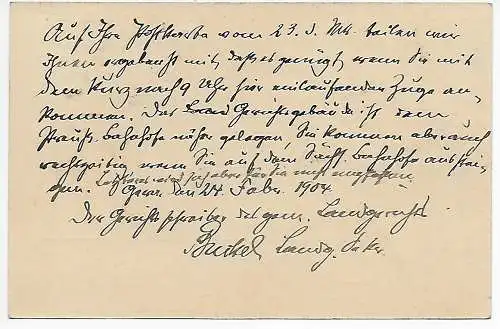 Auf Ihre Postkarte vom 23. d. Mts. teilen wir
Ihnen ergebenst mit, daß es genügt, wenn Sie mit
dem kurz nach 9 Uhr hier einlaufenden Zuge an-
kommen. Das Land Gerichtsgebäude ist dem
Preuß. Bahnhofe näher gelegen, Sie kommen aber auch
rechtzeitig wenn Sie auf dem Sächs. Bahnhofe ausstei-
gen. Letzteres wird sich aber für Sie
Gera, den 24. Febr. 1904.
Der Gerichtsschreiber des gem. Landgerichts
Landg. Sekr.